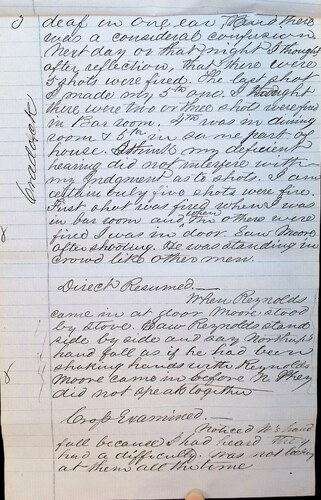 deaf in one ear & and there
was a consideral confusion
Next day or that night I thought
after reflection, that there were
5 shots were fired. The last shot
I made my 5th one. I thought
there were two or three shots were fired
in Bar room. 4th was in dining
room & 5th in some part of
house. I think my deficient
hearing did not interfere with
my Judgment as to shots. I am
certain only five shots were fire.
First shot was fired when I was
in bar room and when the others were
fired I was in door. Saw Moore
after shooting. He was standing in
Crowd like other men.
Direct Resumed.—
When Reynolds
came in at door Moore stood
by stove. Saw Reynolds stand
side by side and say Northup's
hand fall as if he had been
shaking hands with Reynolds
Moore came in before N They
did not speak together
Cross Examined.—
Noticed N's hand
fall because I had heard they
had a difficulty. was not looking
at them all the time
Craddock